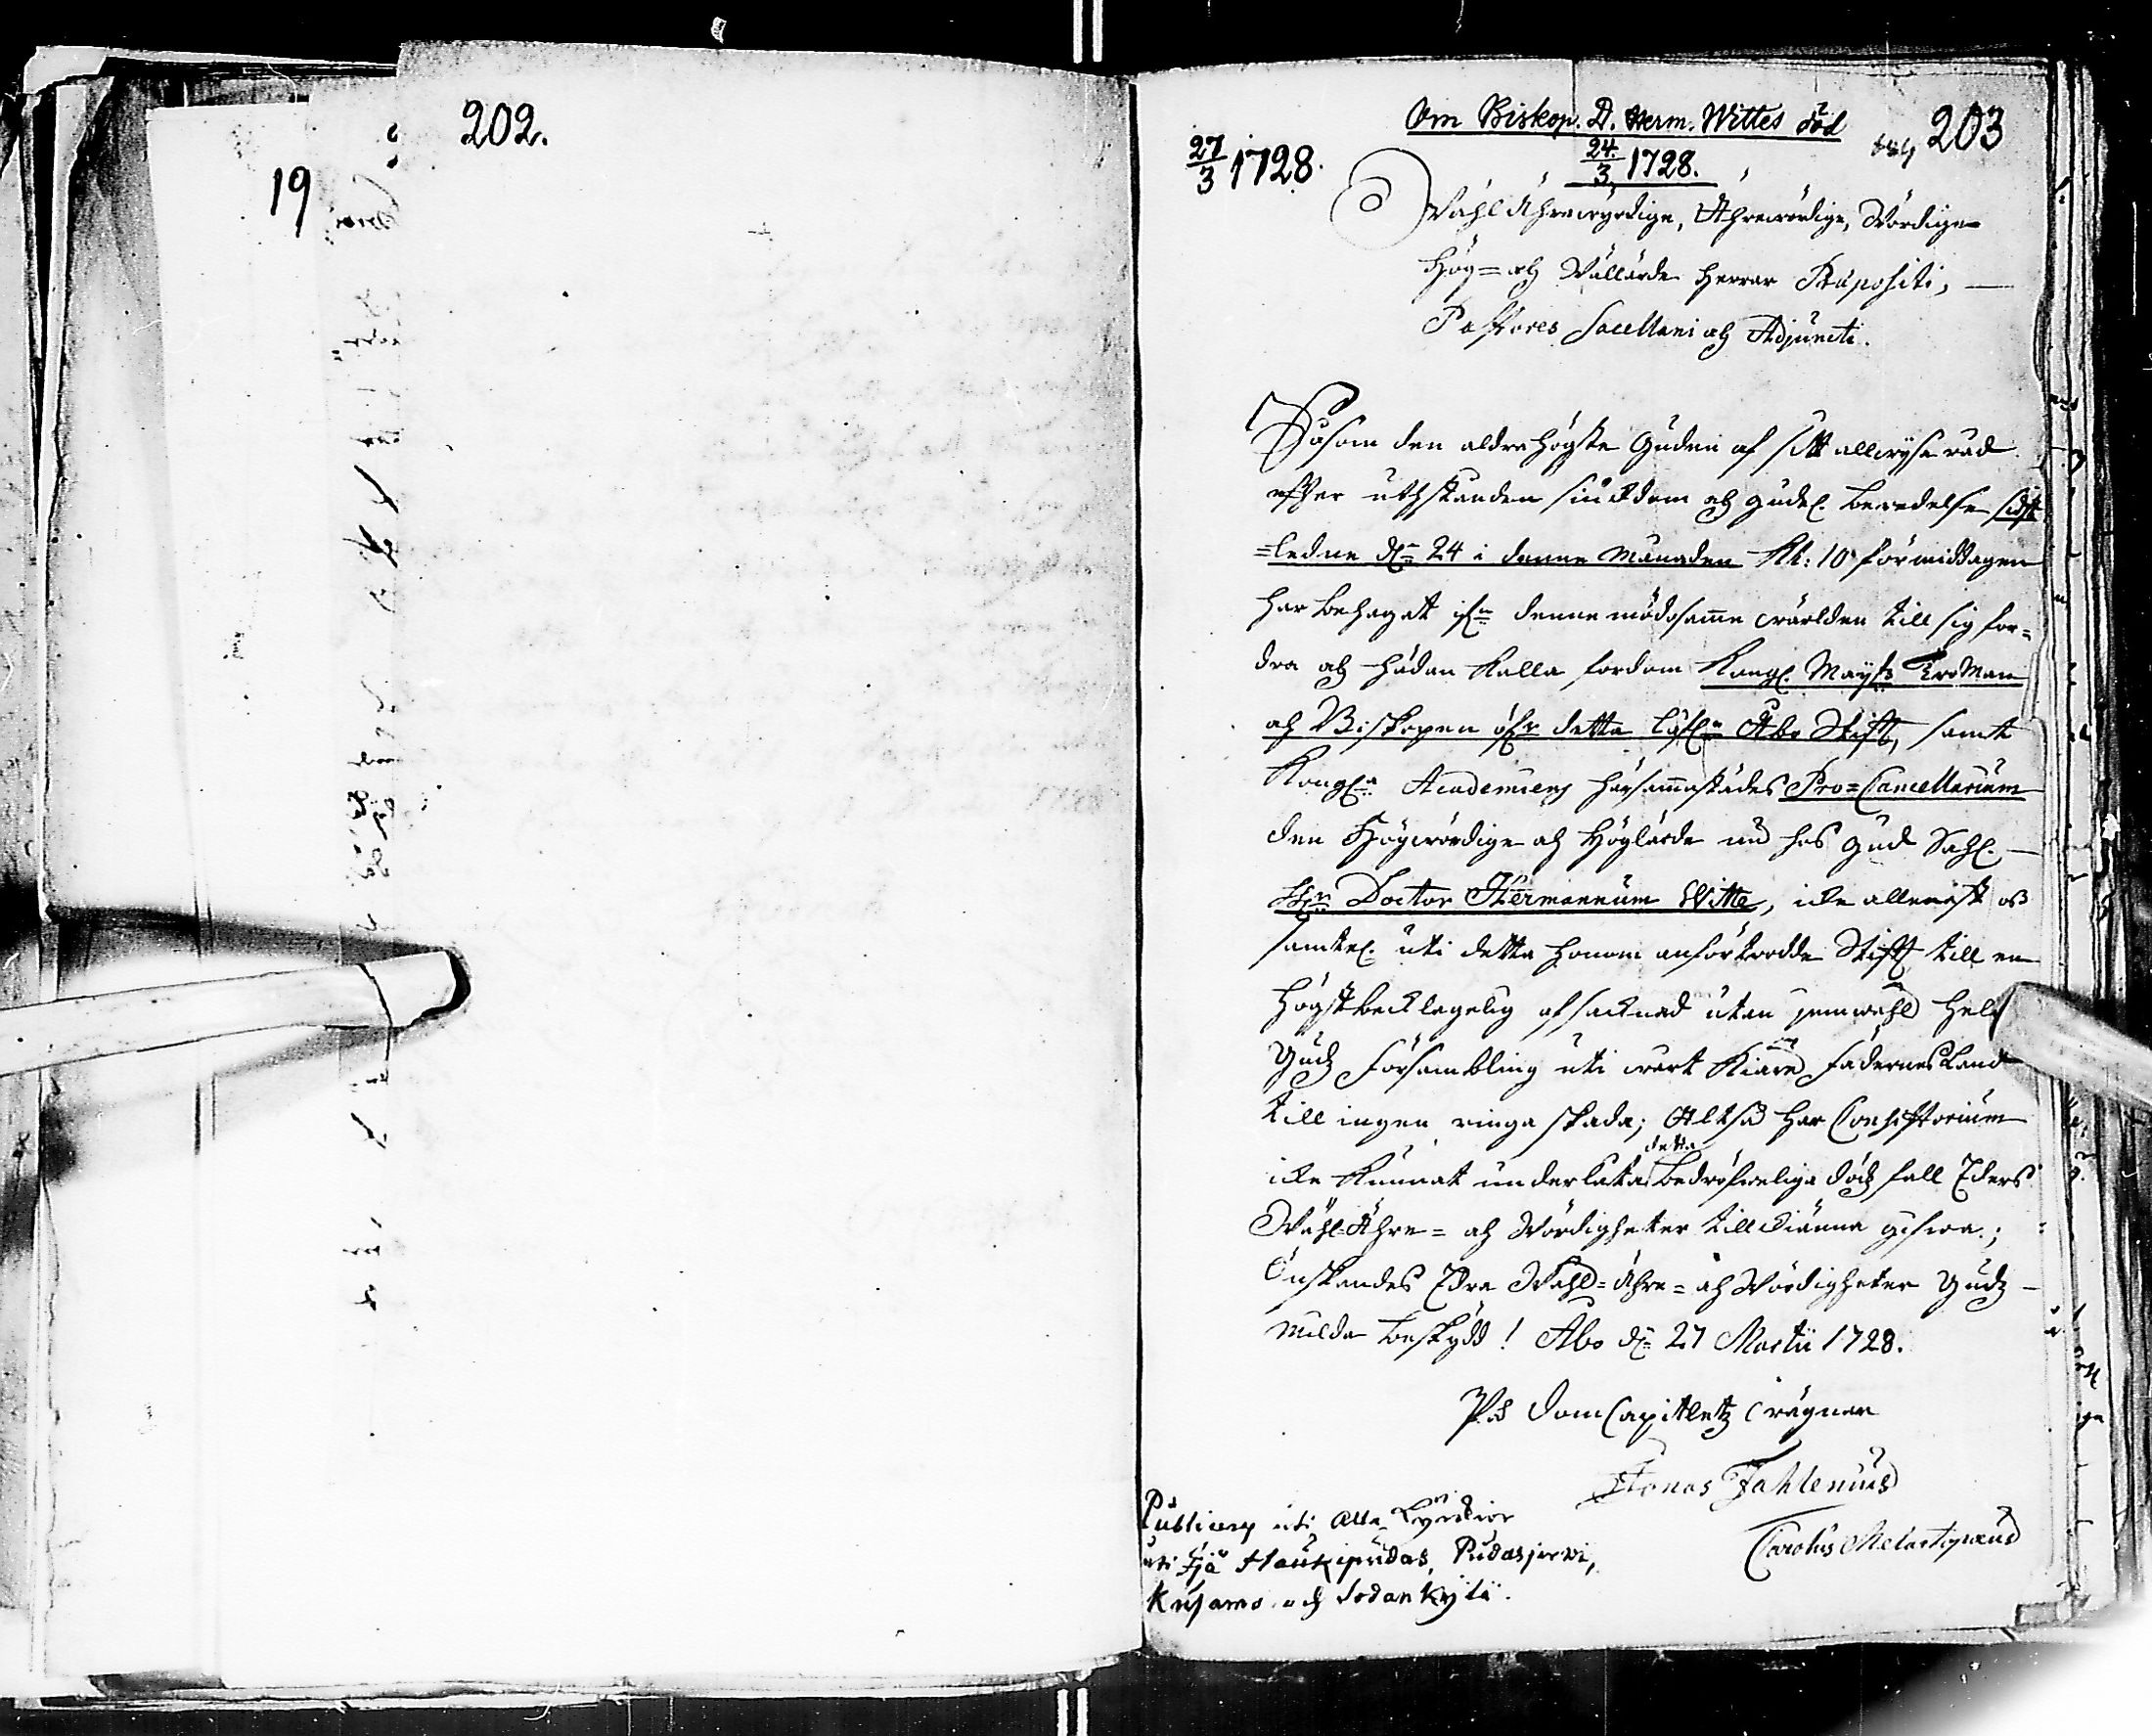 202.
19
Om Biskop. D. Herm. Wittes död
203
27/3 1728.
24./3 1728.
Wähl Ährewyrdige, Ährewördige, Wördige
Hög= och Wällärde Herrar Præpositi,
Pastores Sacellani och Adjuncti.
Såsom den aldrahögste Guden af sitt allwysa råd
efter uthstånden siukdom och gudel. beredelse sidst
=ledne d. 24 i denne Månaden Kl: 10 förmiddagen
har behagat ifrn denne mödosamme wärlden till sig for=
dra och hädan kalla fordom Kongl. Mayts TroMan
och Biskopen öfr detta Åbo Stift, samt
Kongl. Academiens härsammastädes Pro=Cancellarium
den Högwördige och Höglärde nu hos Gud Sahl.
Hr Doctor Hermannum Witte, icke allenast oss
samtel. uti detta honom anförtrodde Stift till en
högstbeklagelig afsacknad utan jemwähl hela
Gudz Försambling uti wårt Kiäre Fädernesland
till ingen ringa skada; Altså har Consistorium
icke kunnat underlåta detta bedröfwelige dödzfall Eders
Wähl=Ähre= och Wördigheter till kiänna gifwa.;
Önskandes Edra Wähl=Ähre= och Wördigheter Gudz
milda beskydd! Åbo d. 27 Martii 1728.
På DomCapitletz wägnar
Jonas Fahlenius
Carolus Melartopæus
Publicerg uti Alla Kyrckior
uti Ijå Haukipudas, Pudasjerwi,
Kusamo och Sodankylä.